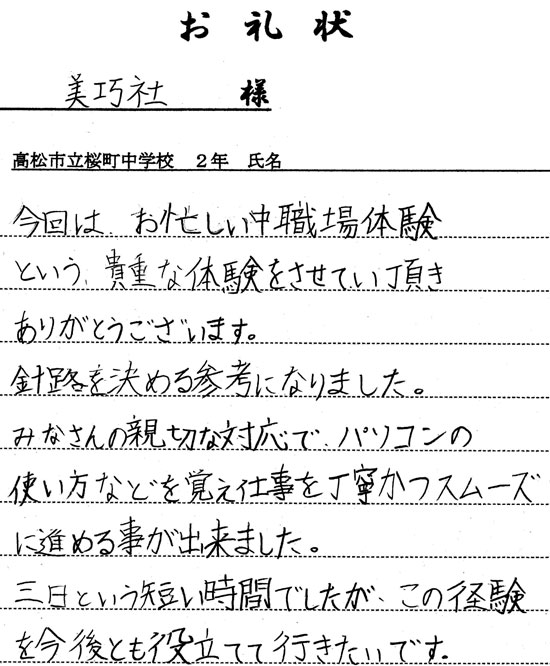 お礼状
美巧社 様
高松市立桜町中学校 2年 氏名
今回は、お忙しい中職場体験
という、貴重な体験をさせてい頂き
ありがとうございます。
針路を決める参考になりました。
みなさんの親切な対応で、パソコンの
使い方などを覚え仕事を丁寧かつスムーズ
に進める事が出来ました。
三日という短い時間でしたが、この経験
を今後とも役立てて行きたいです。